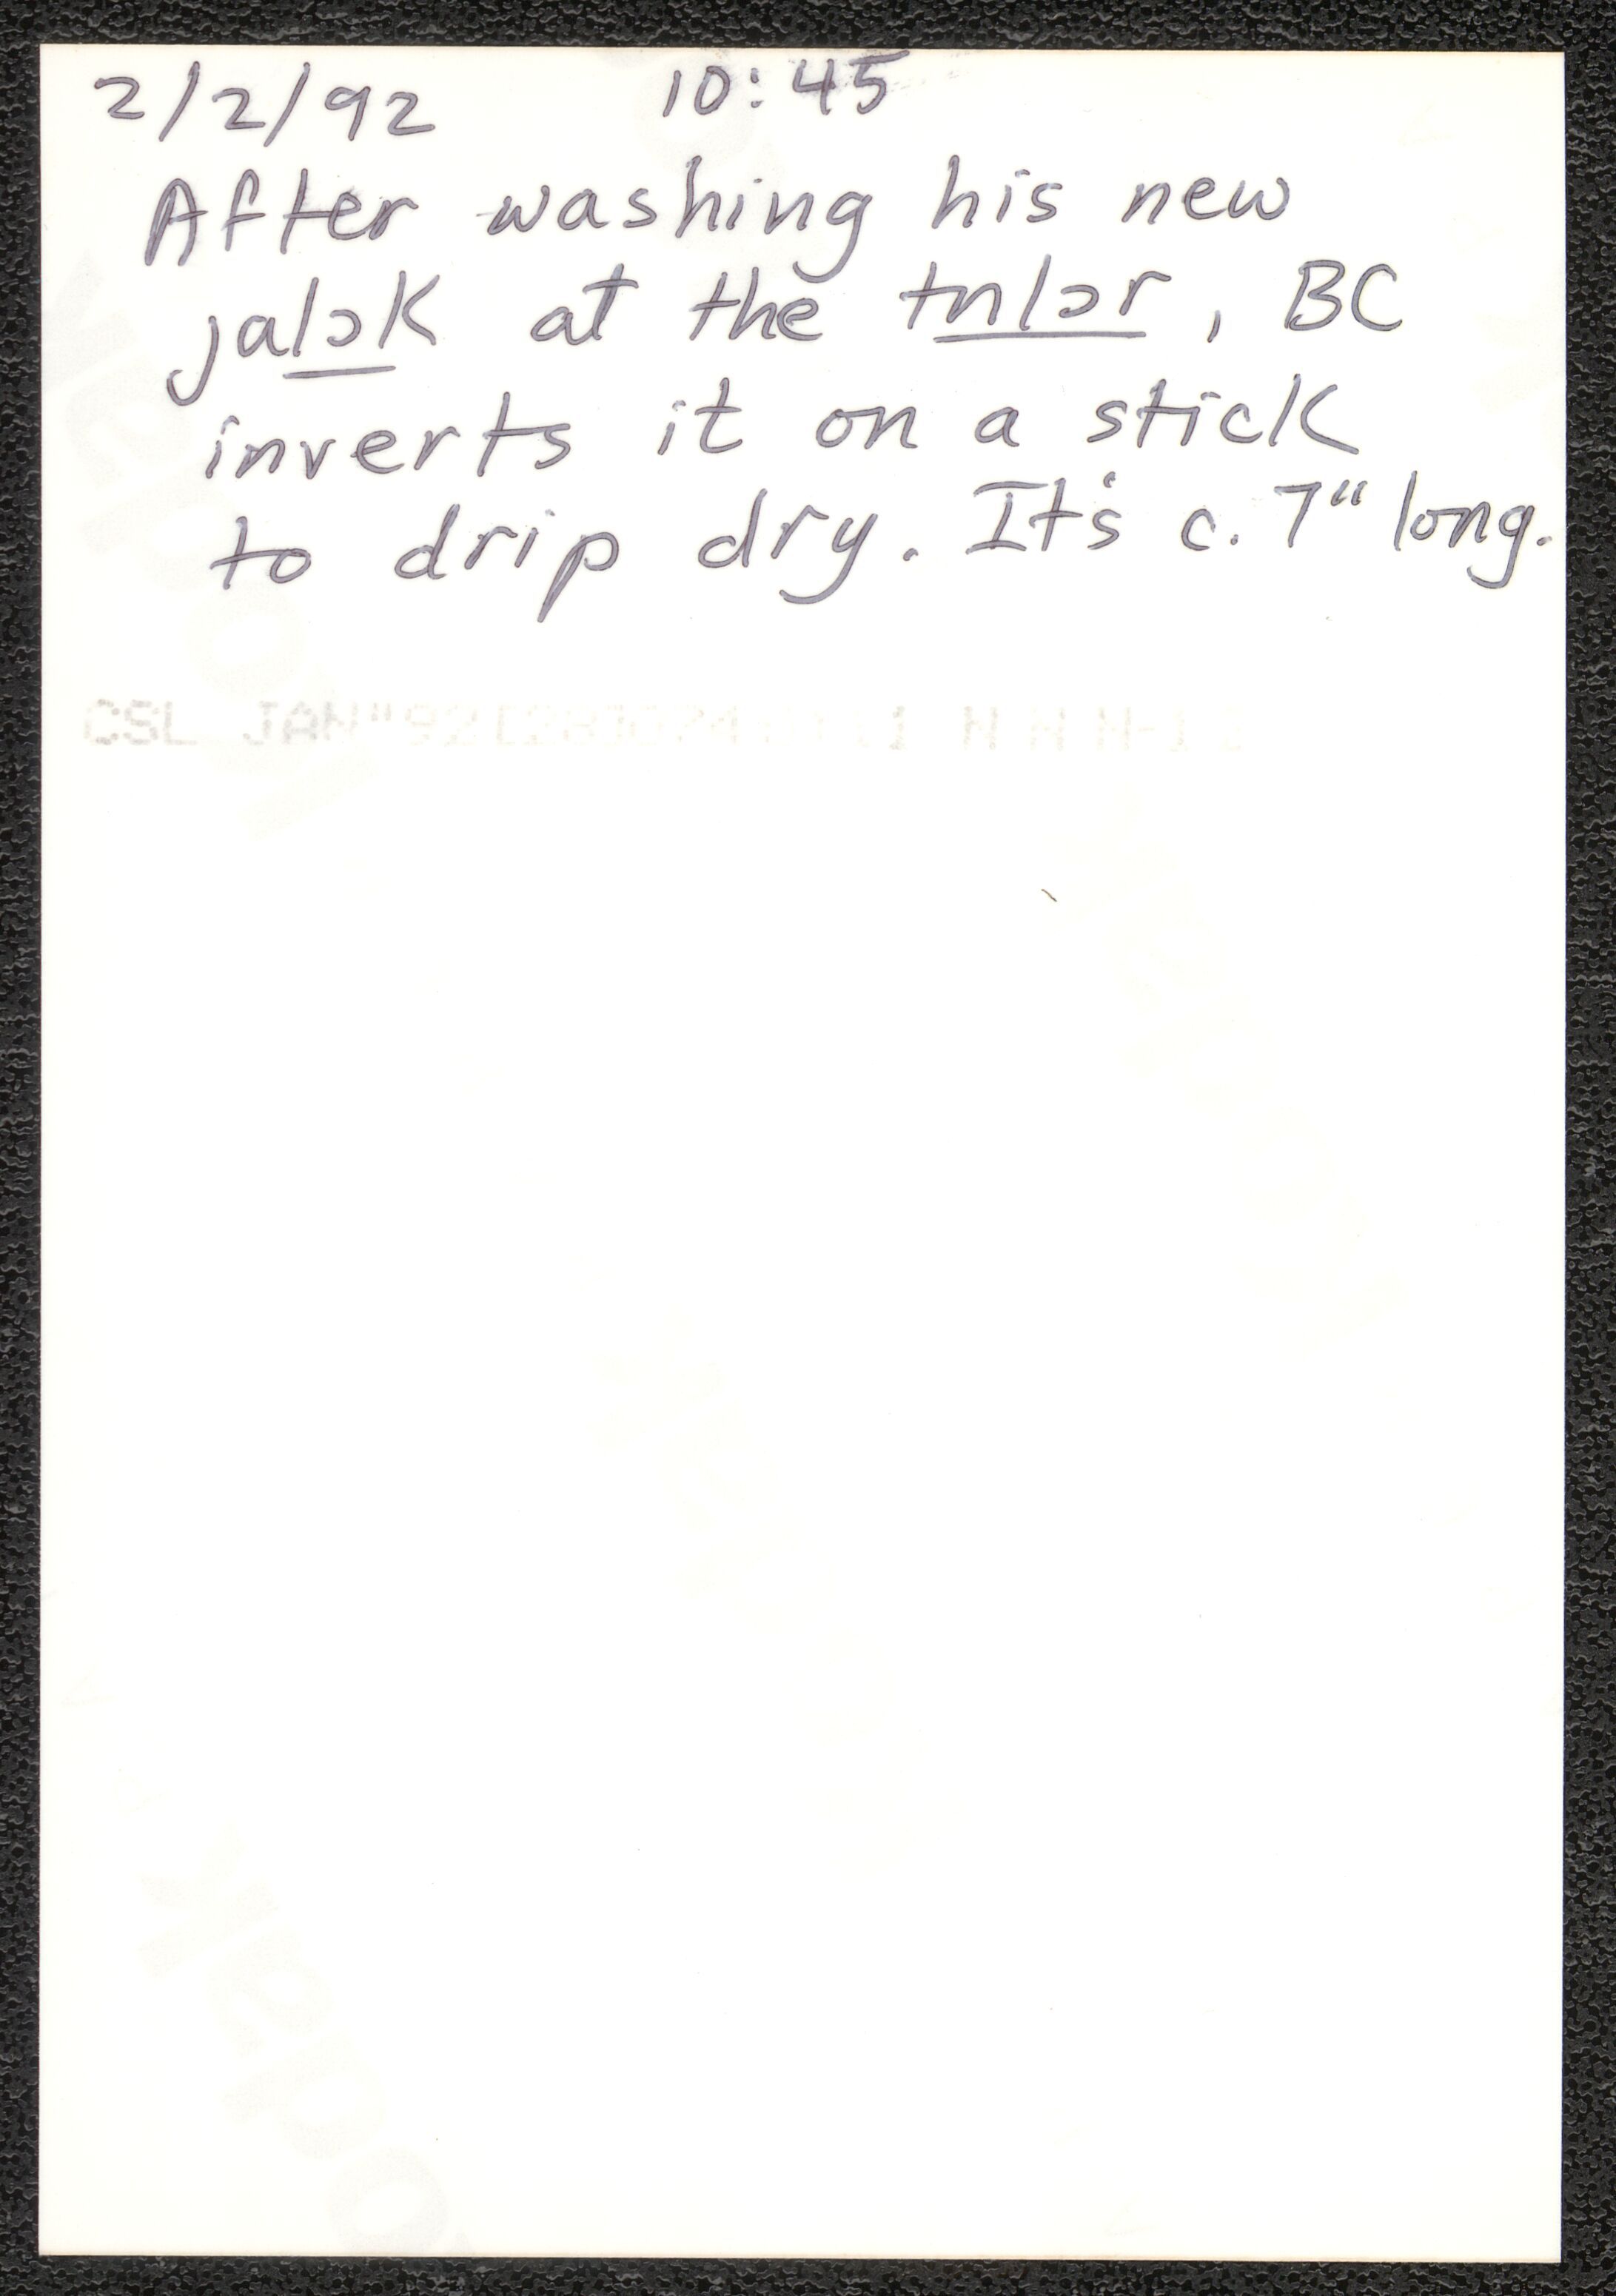 2/2/92 10:45
After washing his new
jalɔk at the tnlɔr, BC
inverts it on a stick
to drip dry. It's c. 7" long.
CSL JAN"92